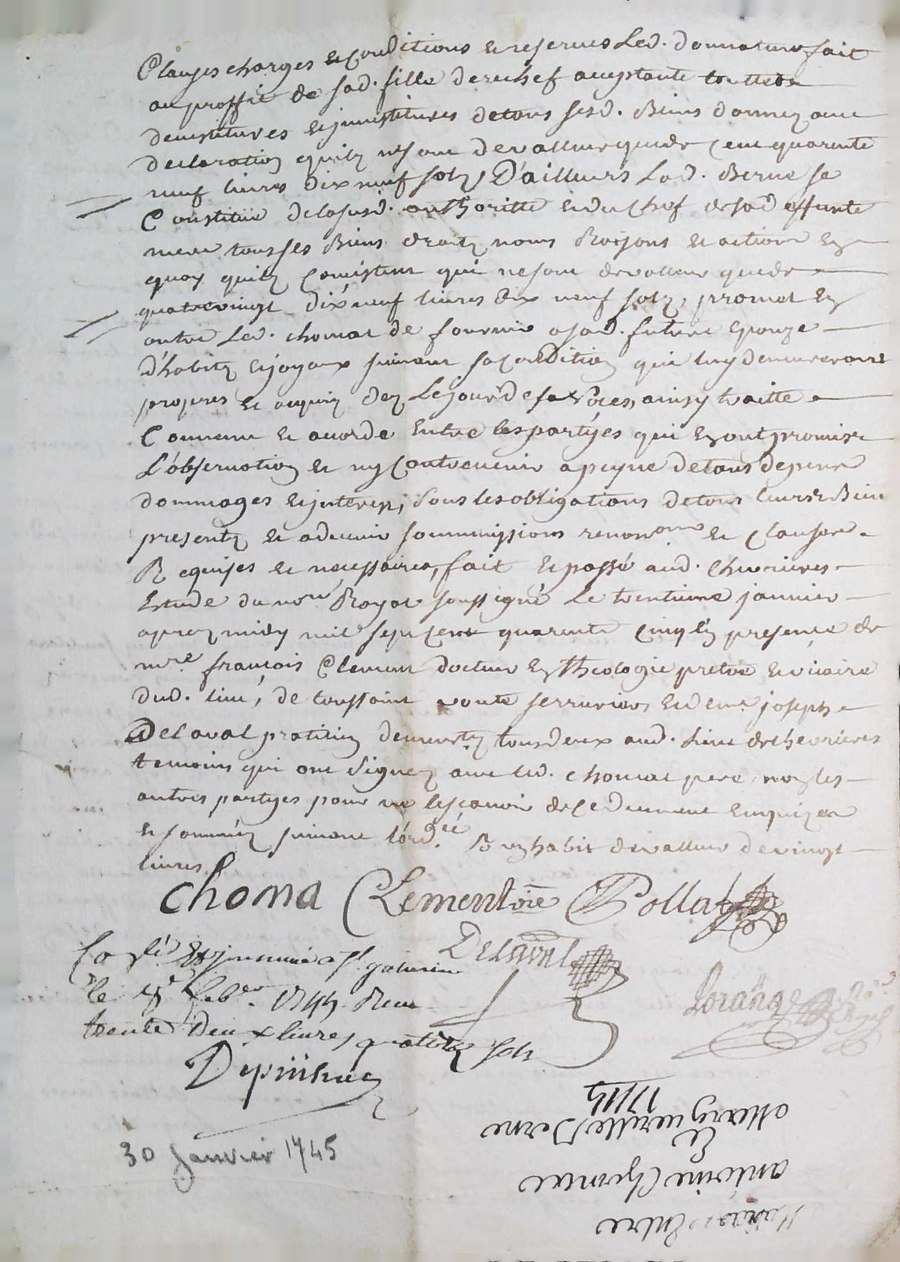 Clauses charges et conditions et reserves Led. donnateur fait
au proffit de sad. fille derechef acceptante touttes
devestitures et jnvestitures de tous sesd. Biens donnez avec
declaration quilz ne sont de valleur que de Cent quarente
neuf livres dix neuf solz, D'ailleurs Lad. Berne se
Constitue de lasusd. authoritte et du chef de sad. deffunte
mere tous ses Biens droitz noms Raisons et actions En
quoy quilz Consistent qui ne sont de valleur que de
quatrevingt dix neuf livres dix neuf solz, promet En
outre Led. chomat de fournir a sad. future Epouze
d'habitz et joyaux suivant sa condition qui luy demeureront
propres et acquis dez Le jour de ses noces, ainsy traitte
Convenu et acordé Entre les partyes qui En ont promise
L'observation et ny Contrevenir a peyne de tous depens
dommages et jnterest, sous les obligations de tous leurs Biens
presentz et advenir soummissions renon.ons et Clauses
Requises et necessaires, fait et passé aud. Chevrieres
Estude du no.re Royal soussigné Le trentieme janvier
aprez midy mil sept cent quarente Cinq En presence de
m.re francois Clement docteur En Theologie pretre et vicaire
dud. lieu, de toussaint serrurier et de m.e joseph
Delaval praticien demeurantz tous deux aud. Lieu de chevrieres
temoins qui ont signez avec led. chomat pere, non les
autres partyes pour ne le scavoir de ce deuement Enquizes
et sommées suivant l'ord.ce Et un habit de valleur de vingt
livres
Choma Clement vicre Pollat
Delaval
Co.lé Et jnsinué a St. galmier
le fev.er 1745 Receu
trente Deux livres quatre solz
Lorange No.re Royal
30 Janvier 1745
Mariage Entre
antoine Chomat
Et
Margueritte Berne
1745